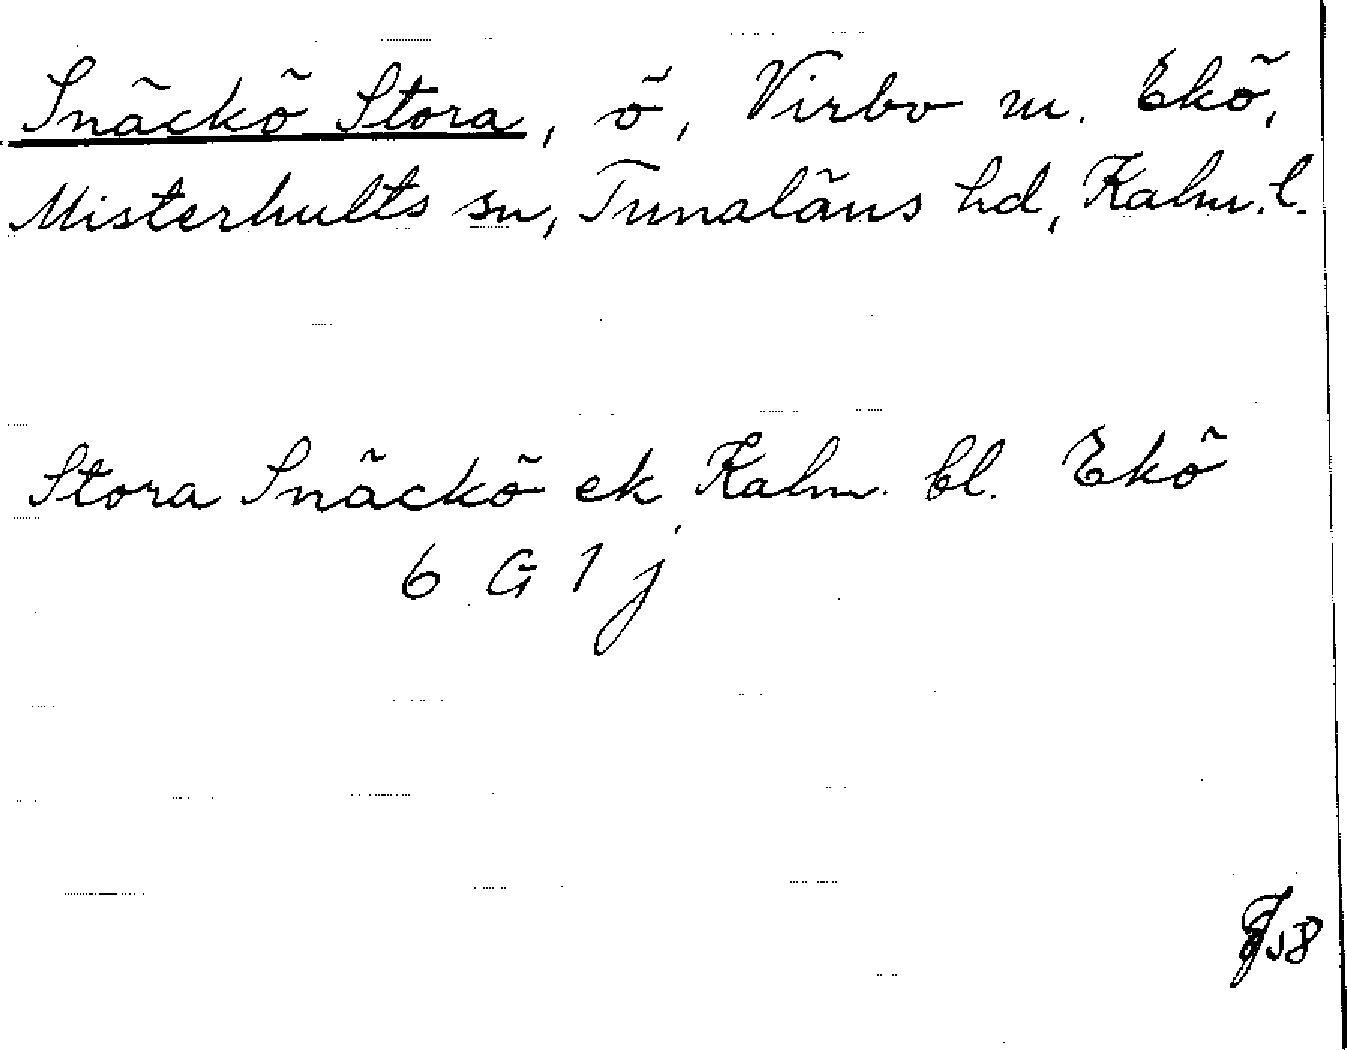 Snäckö Stora, ö, Virbo m. Ekö,
Misterhults sn, Tunaläns hd, Kalm. l.
Stora Snäckö ek Kalm. bl. Ekö
6 G 1 j